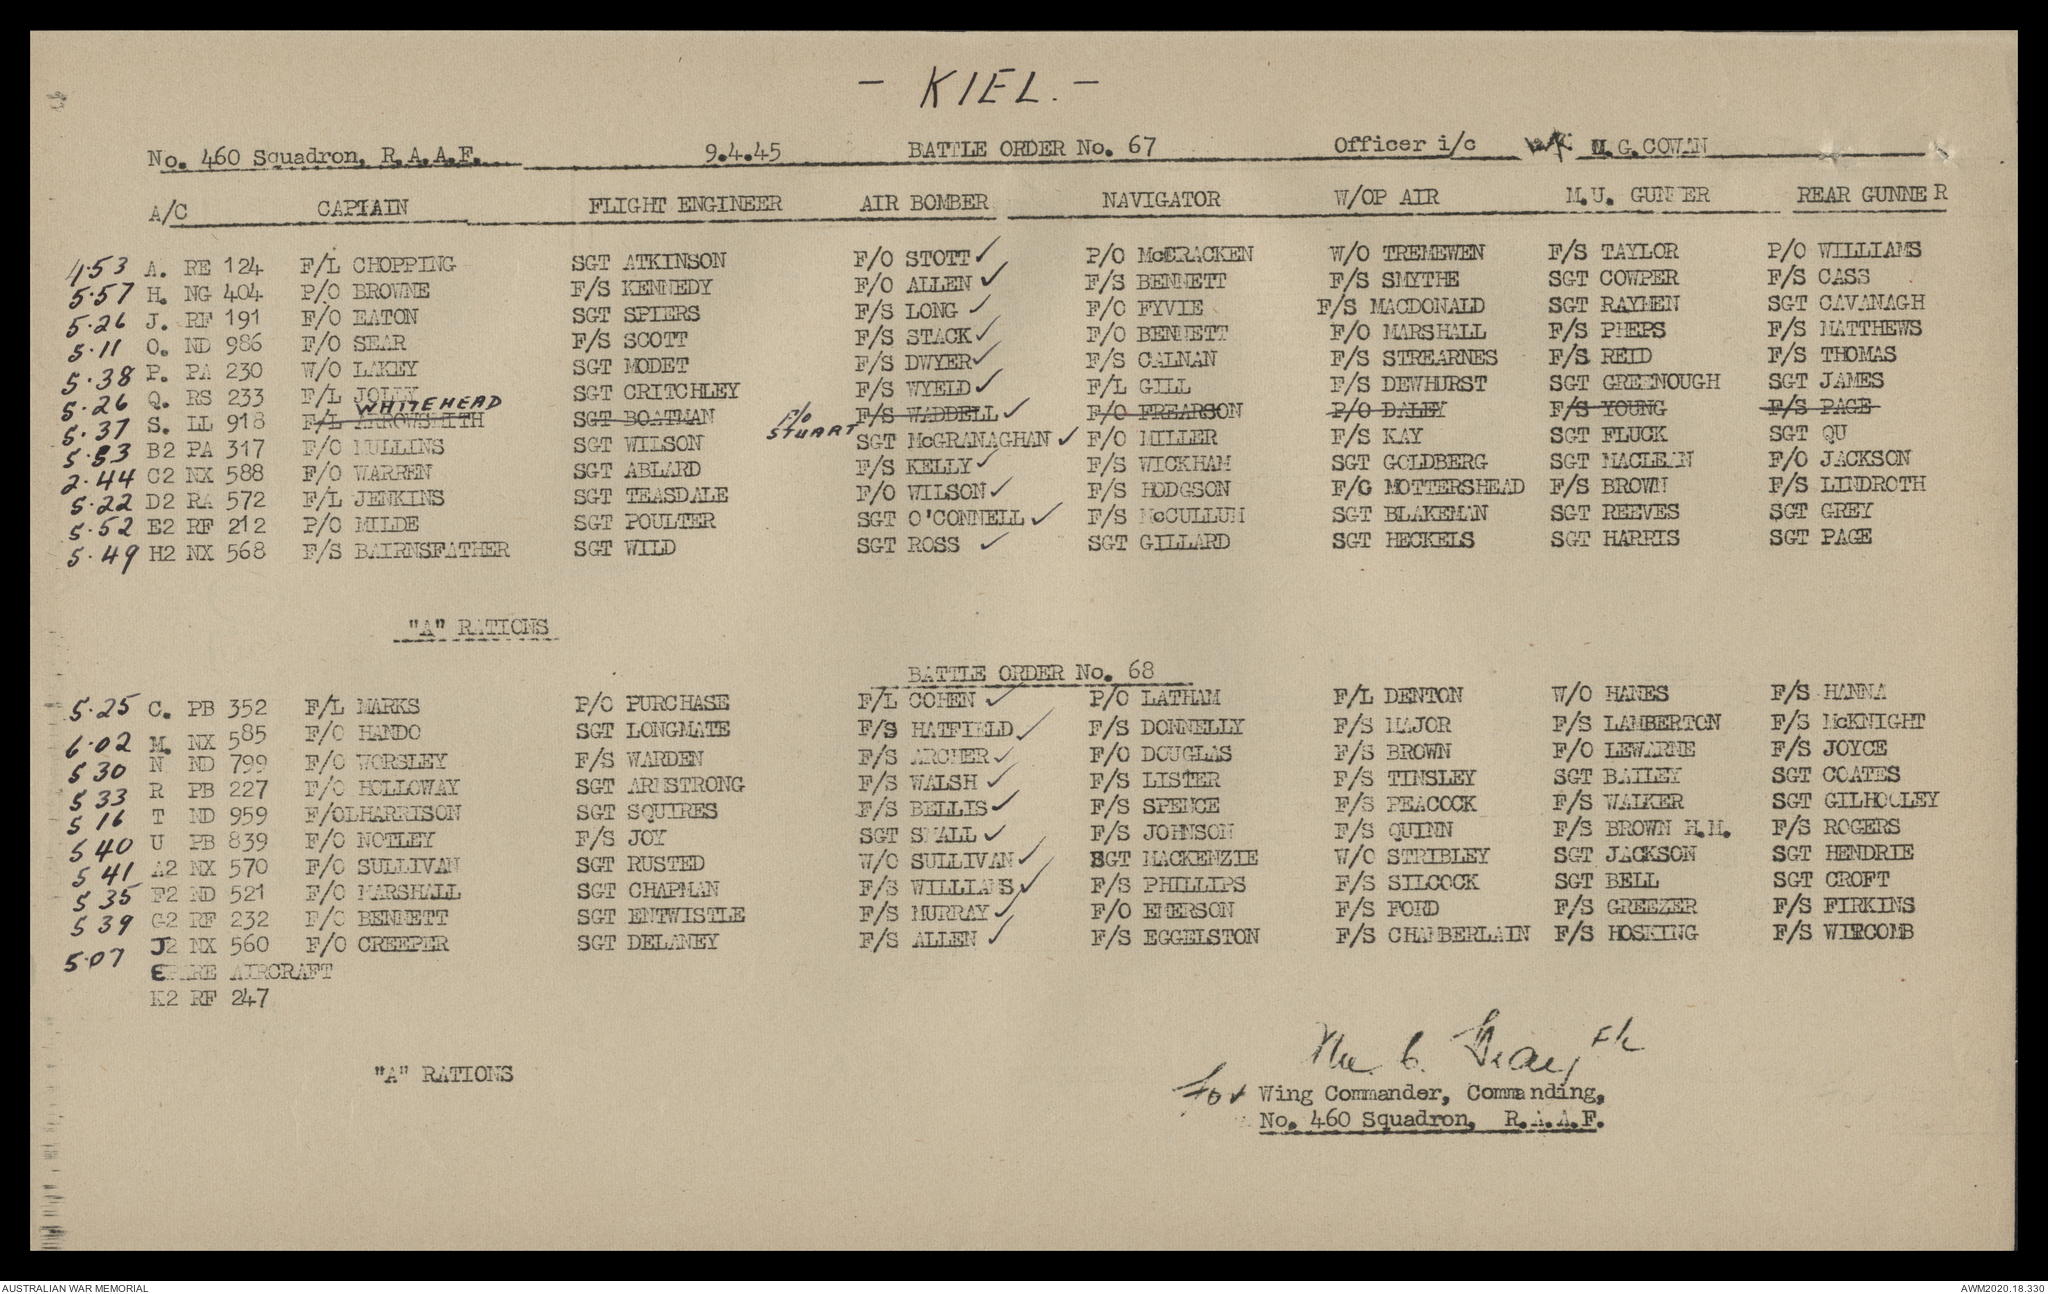 - KIEL. -
No. 460 Squadron, R.A.A.F. 9.4.45 BATTLE ORDER No. 67 Officer i/c M.G. COWAN
A/C CAPTAIN FLIGHT ENGINEER AIR BOMBER NAVIGATOR W/OP AIR M.U. GUNNER REAR GUNNER
4.53 A. RE 124 F/L CHOPPING SGT ATKINSON F/O STOTT ✓ P/O McCRACKEN W/O TREMEWEN F/S TAYLOR P/O WILLIAMS
5.57 H. NG 404 P/O BROWNE F/S KENNEDY F/O ALLEN ✓ F/S BENNETT F/S SMYTHE SGT COWPER F/S CASS
5.26 J. RF 191 F/O EATON SGT SPIERS F/S LONG ✓ F/O FYVIE F/S MACDONALD SGT RAYMEN SGT CAVANAGH
5.11 O. ND 986 F/O SEAR F/S SCOTT F/S STACK ✓ F/O BENNETT F/O MARSHALL F/S PHEPS F/S MATTHEWS
5.38 P. PA 230 W/O LAKEY SGT MODET F/S DWYER ✓ F/S CALNAN F/S STREARNES F/S REID F/S THOMAS
5.26 Q. RS 233 F/L JOLLY SGT CRITCHLEY F/S WYELD ✓ F/L GILL F/S DEWHURST SGT GREENOUGH SGT JAMES
WHITEHEAD
5.37 S. LL 918 F/L ARROWSMITH SGT BOATMAN F/O STUART F/S WADDELL ✓ F/O FREARSON P/O DALEY F/S YOUNG F/S PAGE
5.53 B2 PA 317 F/O MULLINS SGT WILSON SGT McGRANAGHAN ✓ F/O MILLER F/S KAY SGT FLUCK SGT QU
2.44 C2 NX 588 F/O WARREN SGT ABLARD F/S KELLY ✓ F/S WICKHAM SGT GOLDBERG SGT MACLEAN F/O JACKSON
5.22 D2 RA 572 F/L JENKINS SGT TEASDALE F/O WILSON ✓ F/S HODGSON F/O MOTTERSHEAD F/S BROWN F/S LINDROTH
5.52 E2 RF 212 P/O MILDE SGT POULTER SGT O'CONNELL ✓ F/S McCULLUM SGT BLAKEMAN SGT REEVES SGT GREY
5.49 H2 NX 568 F/S BAIRNSFATHER SGT WILD SGT ROSS ✓ SGT GILLARD SGT HECKELS SGT HARRIS SGT PAGE
"A" RATIONS
BATTLE ORDER No. 68
5.25 C. PB 352 F/L MARKS P/O PURCHASE F/L COHEN ✓ P/O LATHAM F/L DENTON W/O HANES F/S HANNA
6.02 M. NX 585 F/O HANDO SGT LONGMATE F/S HATFIELD ✓ F/S DONNELLY F/S MAJOR F/S LAMBERTON F/S McKNIGHT
5 30 N ND 799 F/O WORSLEY F/S WARDEN F/S ARCHER ✓ F/O DOUGLAS F/S BROWN F/O LEWARNE F/S JOYCE
5 33 R PB 227 F/O HOLLOWAY SGT ARMSTRONG F/S WALSH ✓ F/S LISTER F/S TINSLEY SGT BAILEY SGT COATES
5 16 T ND 959 F/OLHARRISON SGT SQUIRES F/S BELLIS ✓ F/S SPENCE F/S PEACOCK F/S WALKER SGT GILHOOLEY
5 40 U PB 839 F/O NOTLEY F/S JOY SGT SMALL ✓ F/S JOHNSON F/S QUINN F/S BROWN H.M. F/S ROGERS
5 41 A2 NX 570 F/O SULLIVAN SGT RUSTED W/O SULLIVAN ✓ SGT MACKENZIE W/O STRIBLEY SGT JACKSON SGT HENDRIE
5 35 F2 ND 521 F/O MARSHALL SGT CHAPMAN F/S WILLIAMS ✓ F/S PHILLIPS F/S SILCOCK SGT BELL SGT CROFT
5 39 G2 RF 232 F/O BENNETT SGT ENTWISTLE F/S MURRAY ✓ F/O EMERSON F/S FORD F/S GREEZER F/S FIRKINS
5.07 J2 NX 560 F/O CREEPER SGT DELANEY F/S ALLEN ✓ F/S EGGELSTON F/S CHAMBERLAIN F/S HOSKING F/S WITCOMB
SPARE AIRCRAFT
K2 RF 247
"A" RATIONS
F/L
for Wing Commander, Commanding,
No. 460 Squadron, R.A.A.F.
AUSTRALIAN WAR MEMORIAL AWM2020.18.330